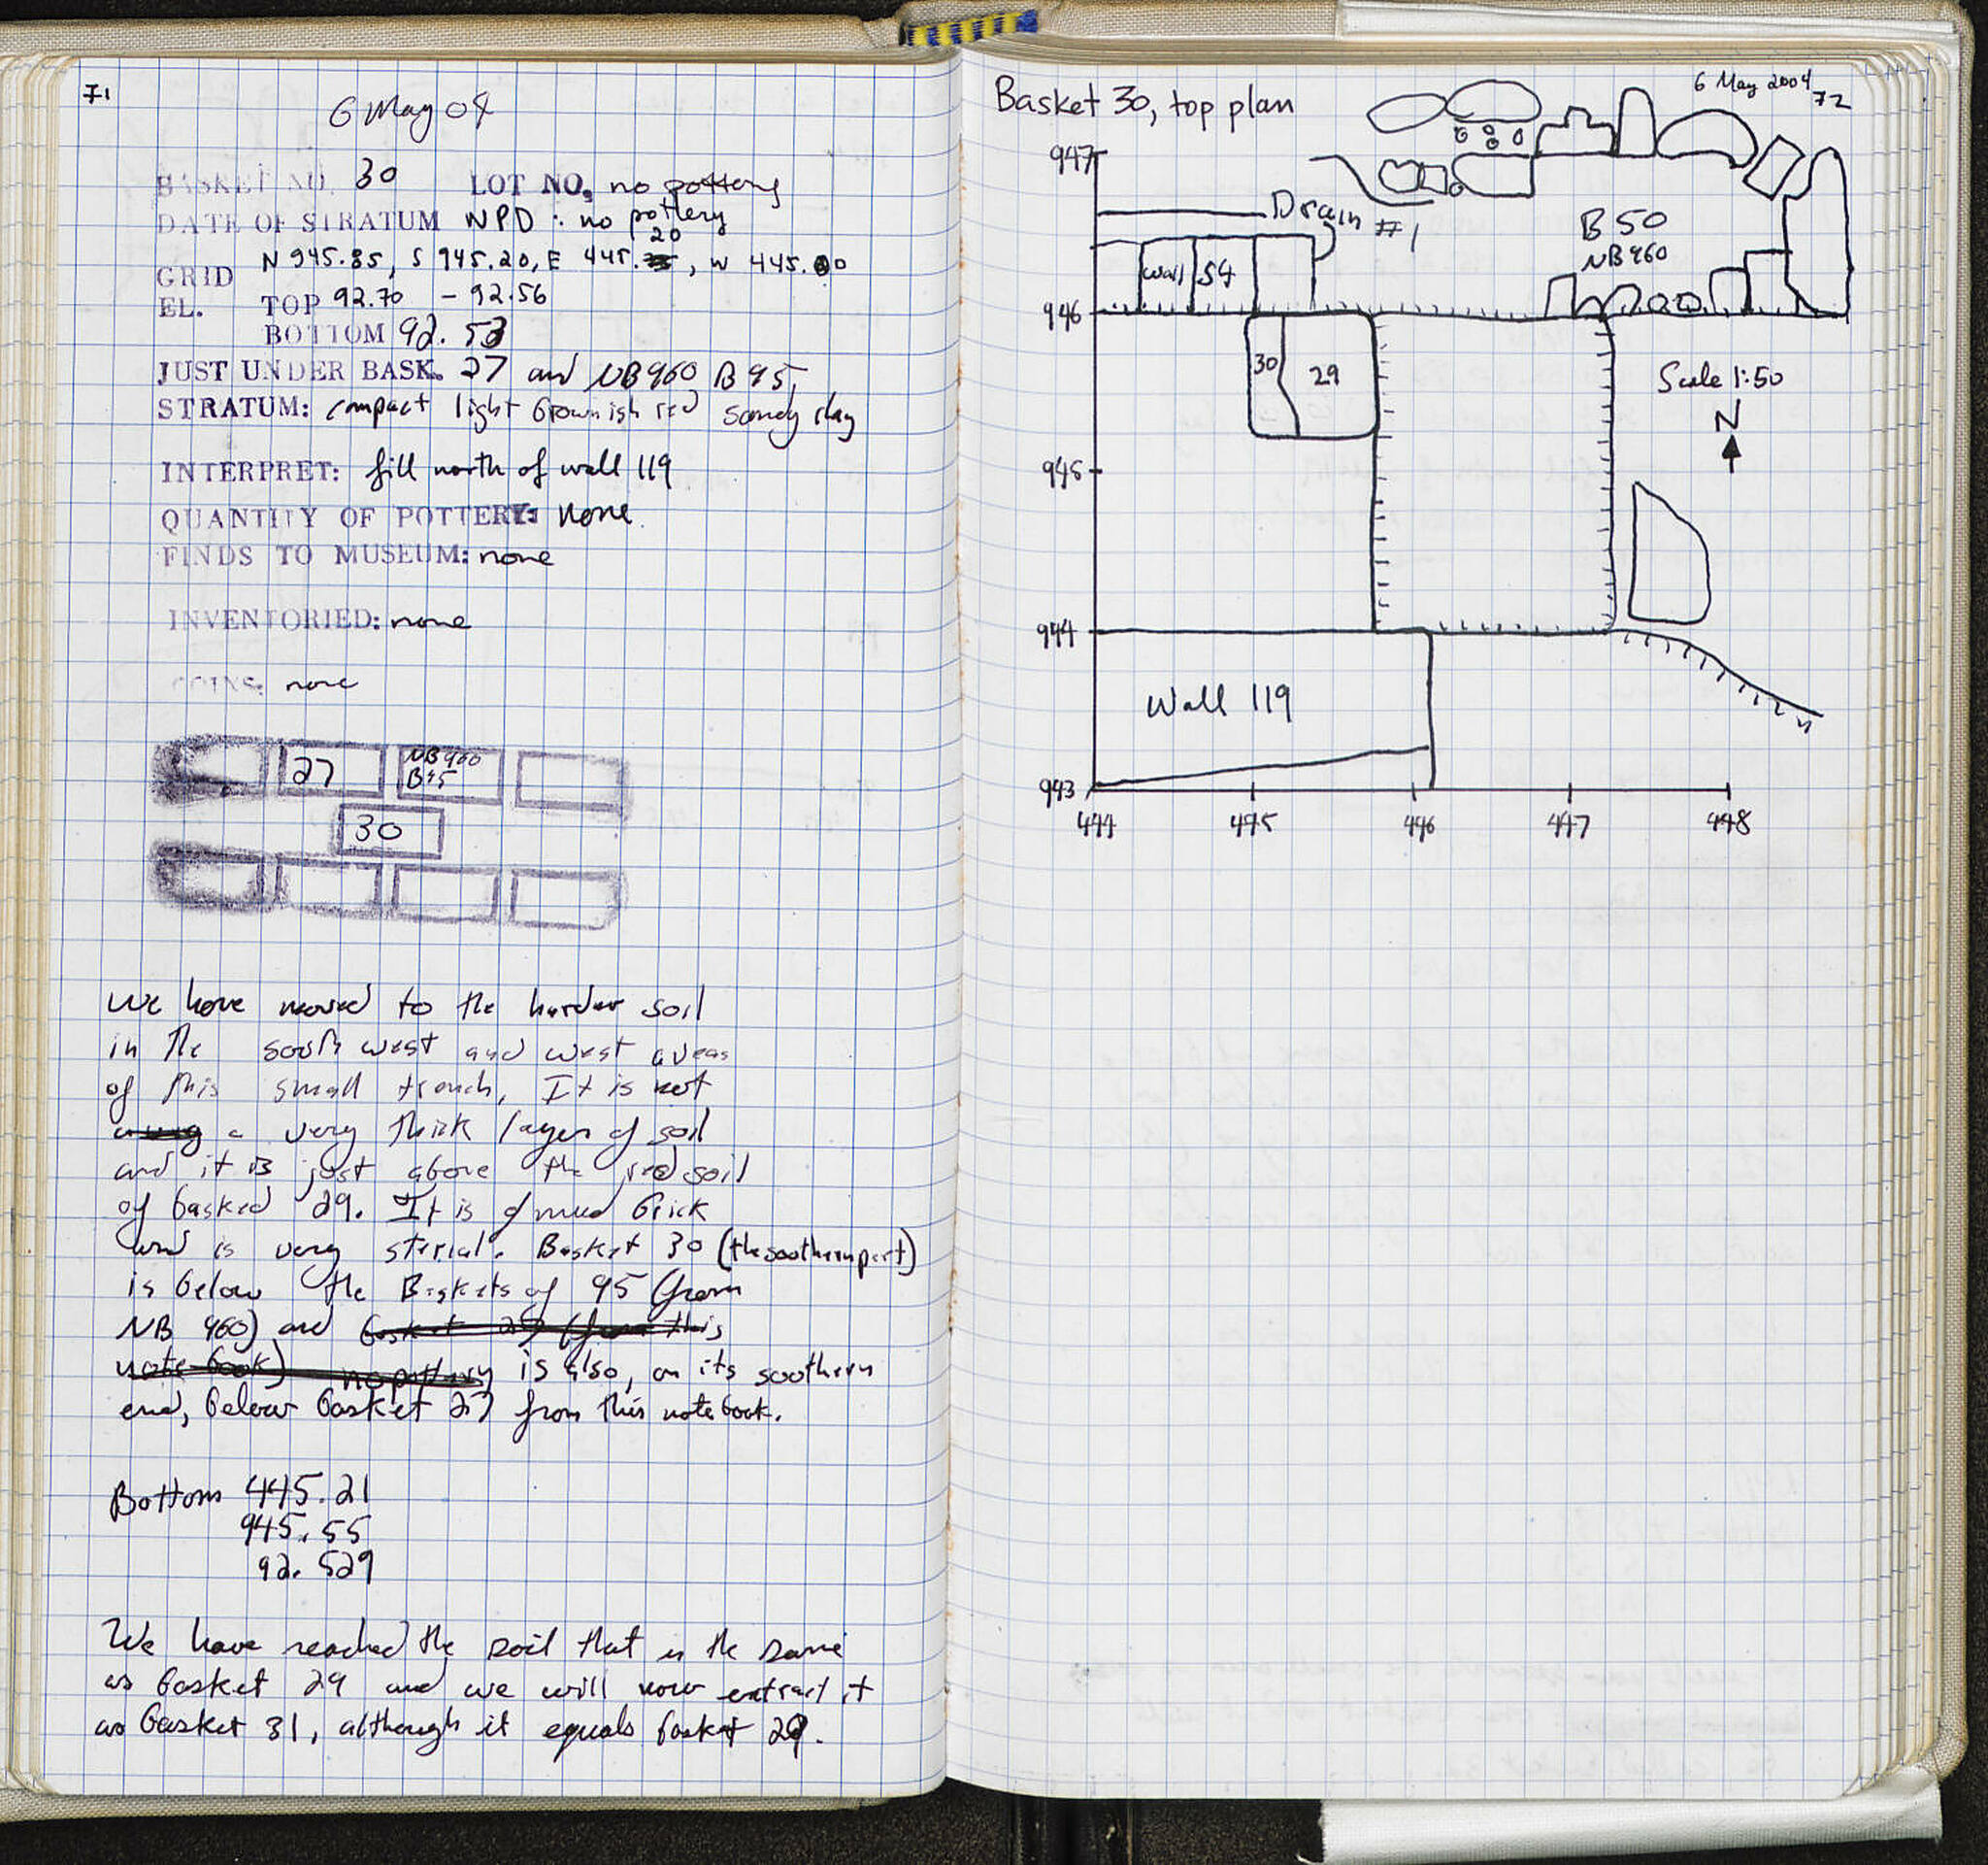 71
6 May 04
BASKET NO. 30 LOT NO. no pottery
DATE OF STRATUM NPD ∴ no pottery
20
GRID N 945.85, S 945.20, E 445. , W 445.00
EL. TOP 92.70 - 92.56
BOTTOM 92.53
JUST UNDER BASK. 27 and NB960 B95,
STRATUM: compact light brownish red sandy clay
INTERPRET: fill north of wall 119
QUANTITY OF POTTERY: none.
FINDS TO MUSEUM: none
INVENTORIED: none
COINS: none
27
NB960
B95
30
We have moved to the harder soil
in the south west and west areas
of this small trench, It is not
a very thick layer of soil
and it is just above the red soil
of basked 29. It is of mud brick
and is very sterial. Basket 30 (the southern part)
is below the Baskets of 95 (from
NB 960) and basket 27 (from this
note book) no pottery is also, on its soothern
end, below basket 27 from this notebook.
Bottom 445.21
945.55
92.529
We have reached the soil that is the same
as basket 29 and we will now extract it
as basket 31, although it equals basket 29.
6 May 2004
72
Basket 30, top plan
947
Drain #1
B 50
NB960
wall 54
946
30
29
Scale 1:50
N
945
944
Wall 119
943
444 445 446 447 448